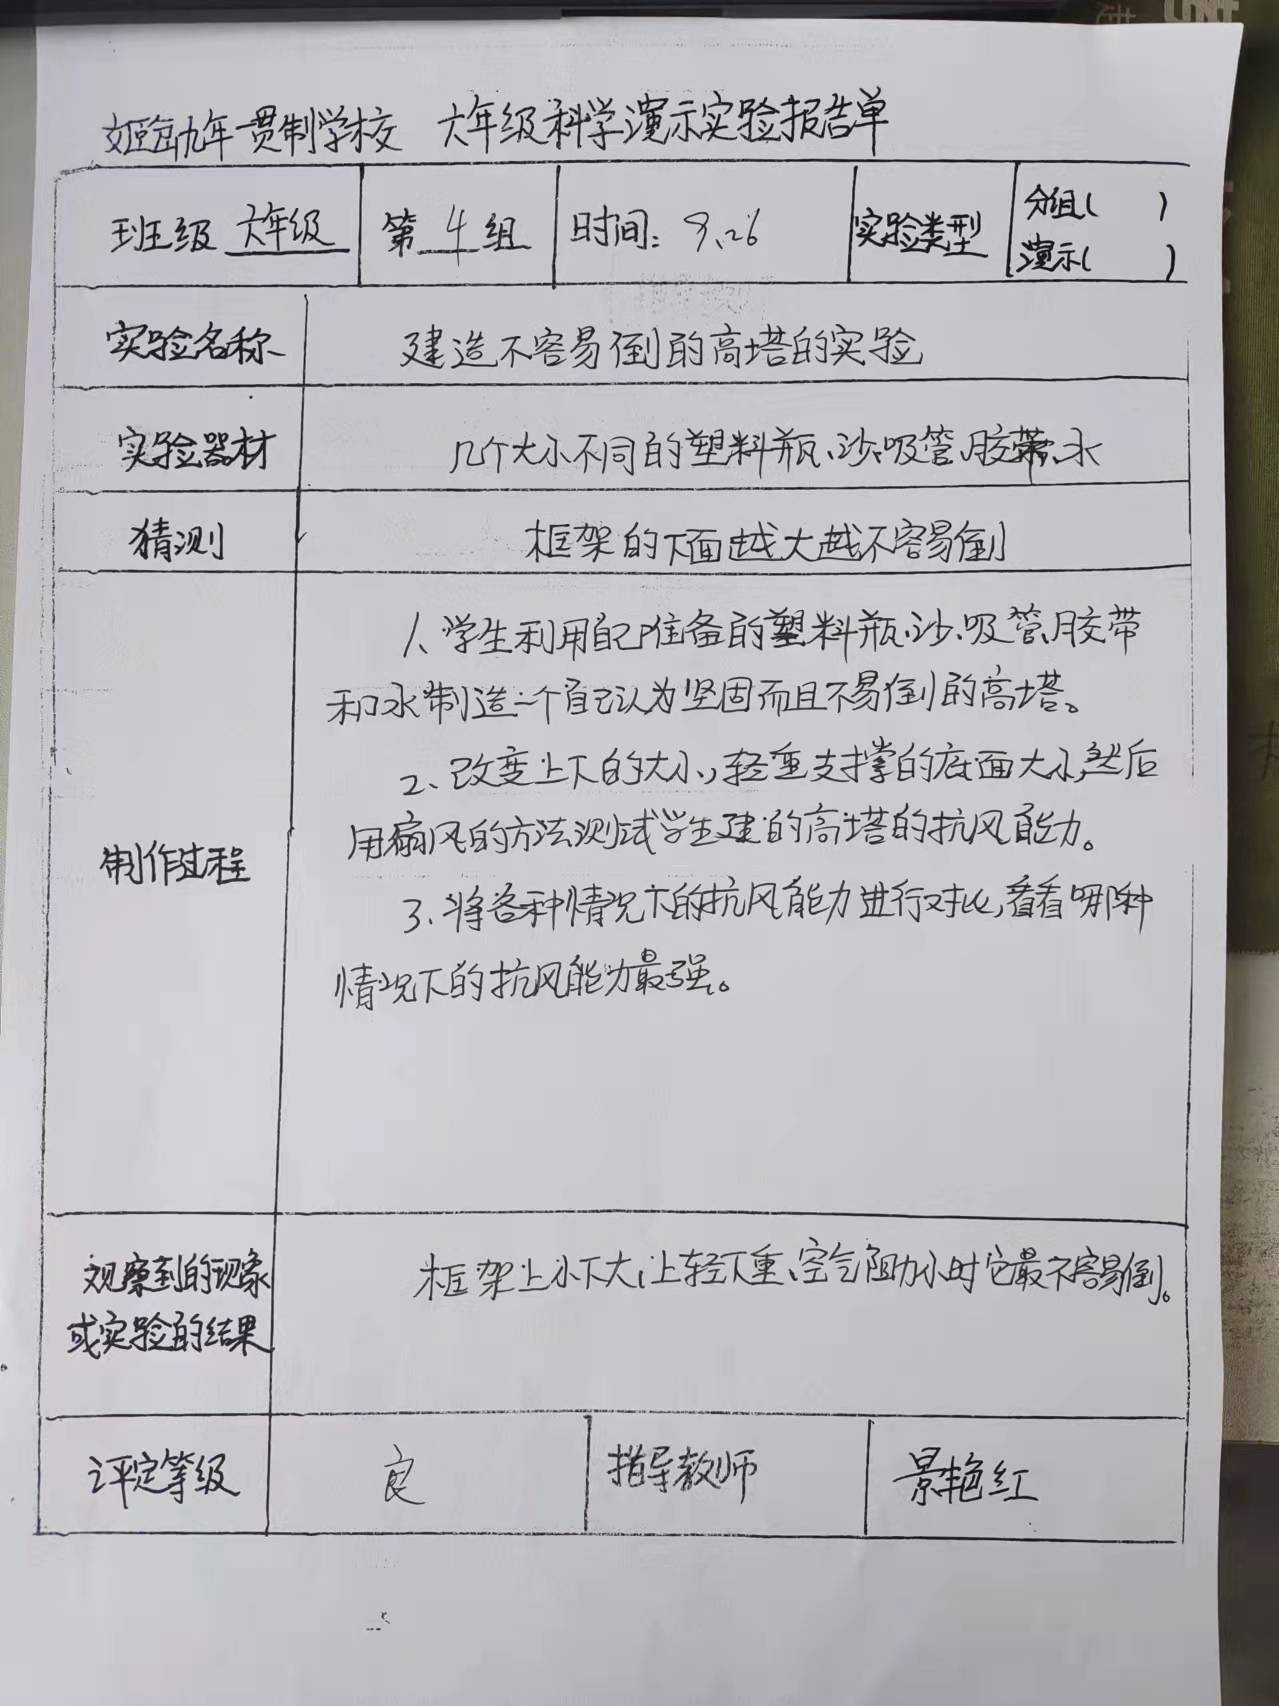 九年一贯制学校 六年级科学演示实验报告单
班级 六年级 第 4 组 时间: 9.26 实验类型 分组( )
演示( )
实验名称 建造不容易倒的高塔的实验
实验器材 几个大小不同的塑料瓶、沙、吸管、胶带、水
猜测 框架的下面越大越不容易倒
1、学生利用自己准备的塑料瓶、沙、吸管、胶带
和水制造一个自己认为坚固而且不易倒的高塔。
2、改变上下的大小,轻重支撑的底面大小,然后
用扇风的方法测试学生建的高塔的抗风能力。
制作过程
3、将各种情况下的抗风能力进行对比,看看哪种
情况下的抗风能力最强。
观察到的现象
或实验的结果
框架上小下大,上轻下重、空气阻力小时它最不容易倒。
评定等级 良 指导教师 景艳红